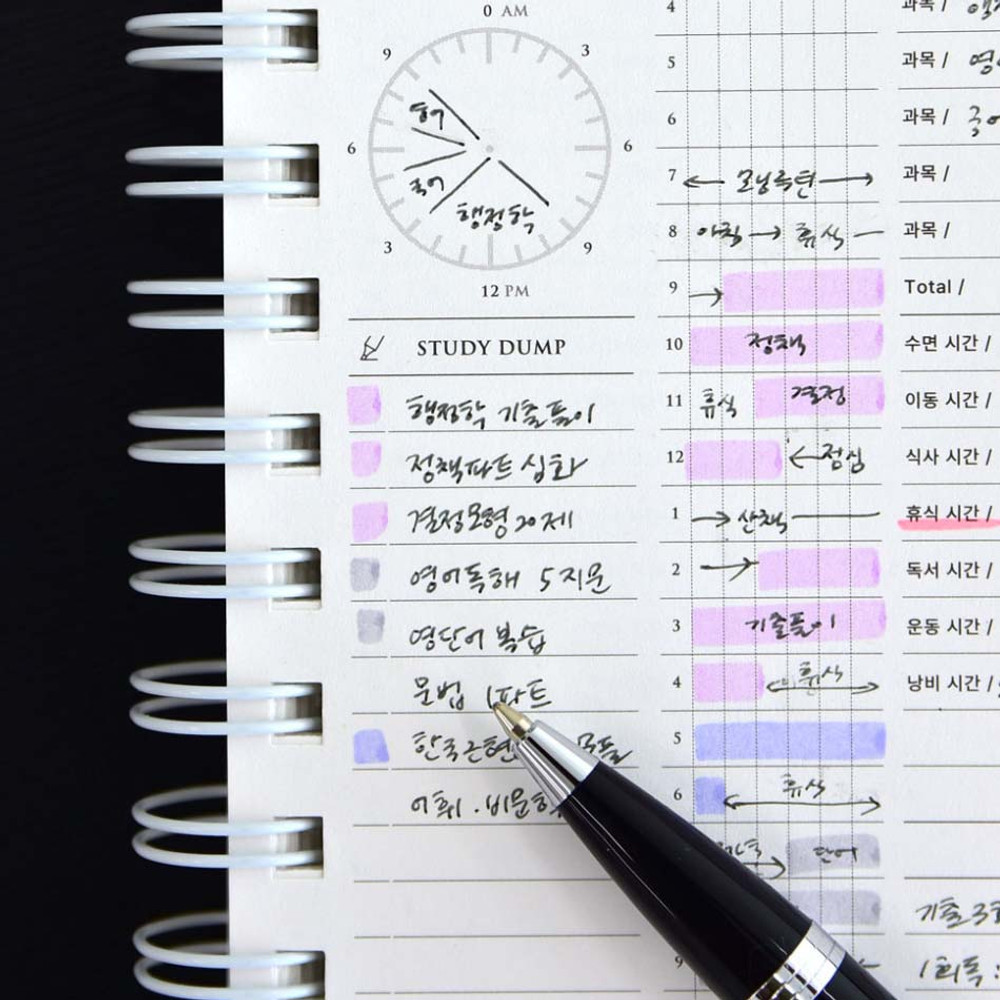 0 AM
3
6
9
12 PM
3
6
9
영어
국어
행정학
STUDY DUMP
행정학 기출풀이
정책파트 심화
결정모형 20제
영어독해 5지문
영단어 복습
문법 1파트
한국근현
어휘 · 비문학
4
5
6
7 모닝루틴
8 아침 → 휴식
9 →
10 정책
11 휴식 결정
12 ← 점심
1 → 산책
2 →
3 기출풀이
4 휴식
5
6 휴식
단어
9
과목 /
과목 / 영
과목 / 국어
과목 /
과목 /
Total /
수면 시간 /
이동 시간 /
식사 시간 /
휴식 시간 /
독서 시간 /
운동 시간 /
낭비 시간 /
기출
1회독 :